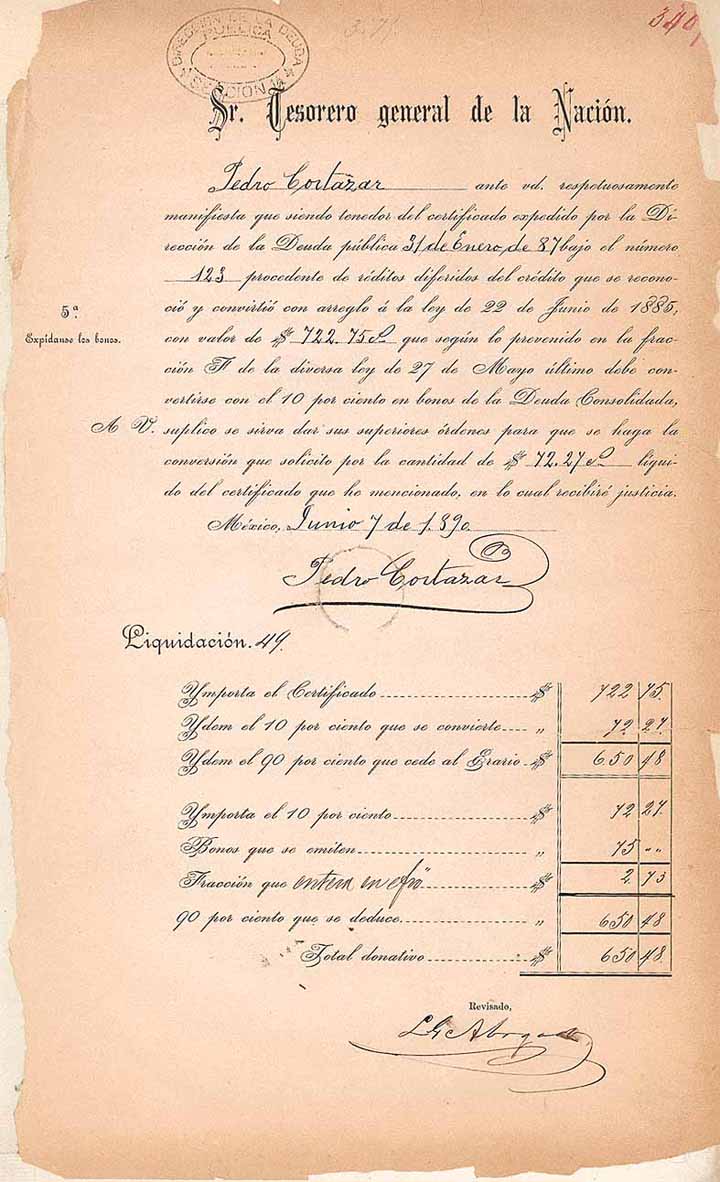 340
DIRECCION DE LA DEUDA
PUBLICA
SECCION 1ª
Sr. Tesorero general de la Nación.
Pedro Cortazar ante vd. respetuosamente
manifiesta que siendo tenedor del certificado expedido por la Di-
rección de la Deuda pública 31 de Enero de 87 bajo el número
123 procedente de réditos diferidos del crédito que se recono-
ció y convirtió con arreglo á la ley de 22 de Junio de 1885,
5ª
Expídanse los bonos.
con valor de $ 722.75 que según lo prevenido en la frac-
ción F de la diversa ley de 27 de Mayo último debe con-
vertirse con el 10 por ciento en bonos de la Deuda Consolidada,
A V. suplico se sirva dar sus superiores órdenes para que se haga la
conversión que solicito por la cantidad de $ 72.27 líqui-
do del certificado que he mencionado, en lo cual recibiré justicia.
México, Junio 7 de 1890
Pedro Cortazar
Liquidación. 49.
Ymporta el Certificado $ 722 75.
Ydem el 10 por ciento que se convierte „ 72 27.
Ydem el 90 por ciento que cede al Erario $ 650 48
Ymporta el 10 por ciento $ 72 27.
Bonos que se emiten „ 75 „„
Fracción que entera en efvo $ 2. 73
90 por ciento que se deduce „ 650 48
Total donativo $ 650 48.
Revisado,